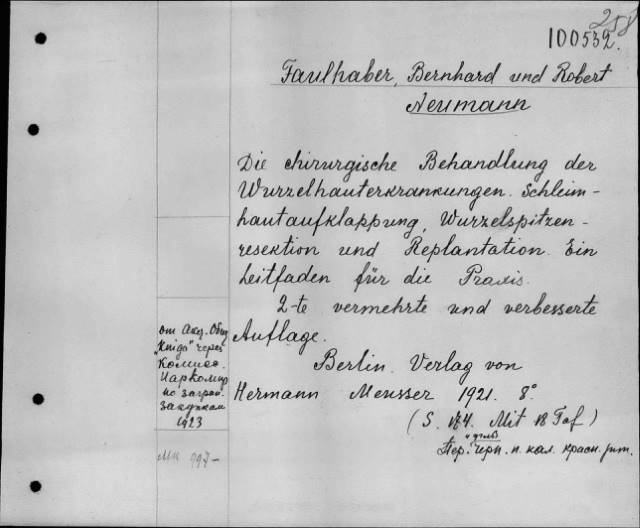 258
100532.
Faulhaber, Bernhard und Robert
Neumann
Die chirurgische Behandlung der
Wurzelhauterkrankungen. Schleim-
hautaufklappung, Wurzelspitzen-
resektion und Replantation. Ein
Leitfaden für die Praxis.
2-te vermehrte und verbesserte
Auflage.
Berlin. Verlag von
Hermann Meusser 1921. 8°
(S. 184. Mit 18 Taf)
Пер. черн. п. кол. красн.
от Акц. Общ
"Kniga" через
Комисс.
Наркомпр
по загран.
закупкам
1923
МК 997-